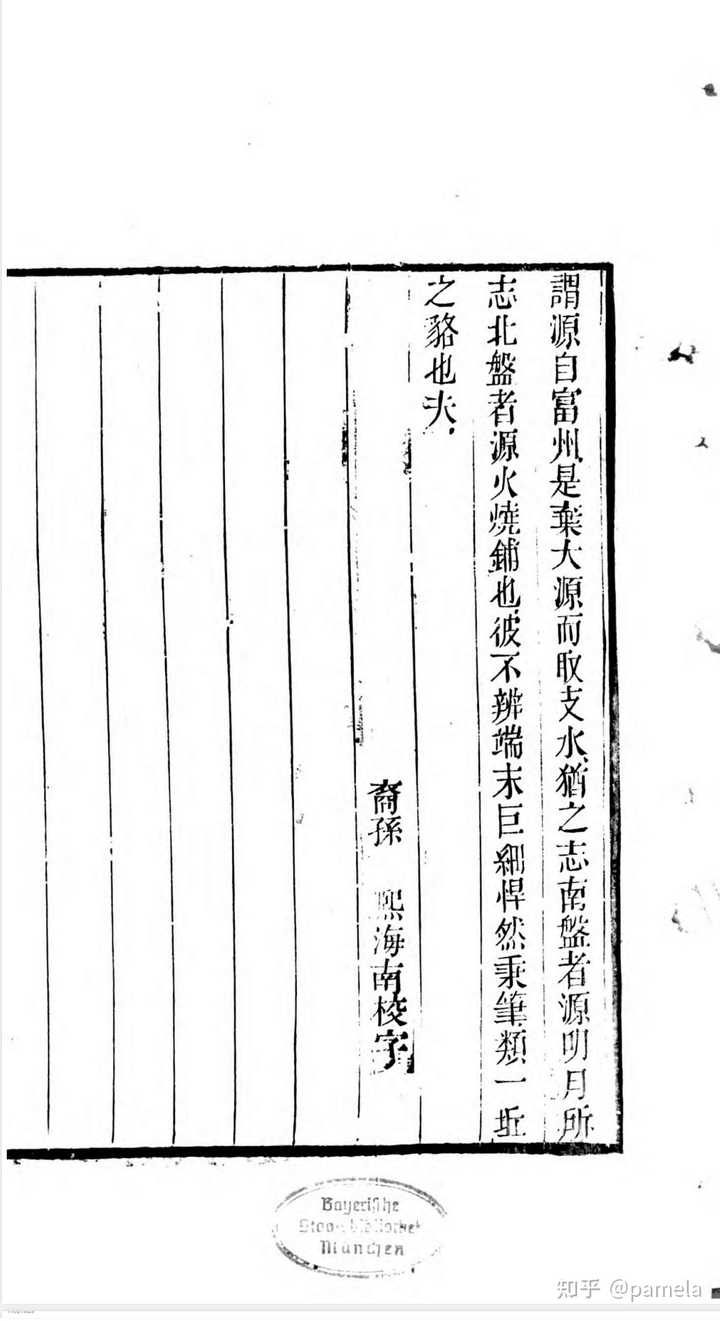 謂源自富州、是棄大源而取支水、猶之志南盤者源明月所
志北盤者源火燒鋪也、彼不辨端末巨細悍然秉筆、類一丘
之貉也夫、
裔孫 熙海南校字
Bayerische
Staatsbibliothek
München
知乎 @pamela